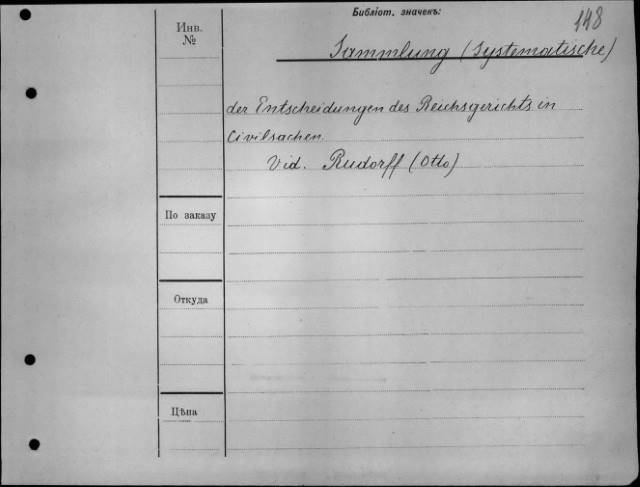 Библіот. значекъ:
148
Инв.
№
Sammlung (Systematische)
der Entscheidungen des Reichsgerichts in
Civilsachen.
Vid. Rudorff (Otto)
По заказу
Откуда
Цѣна